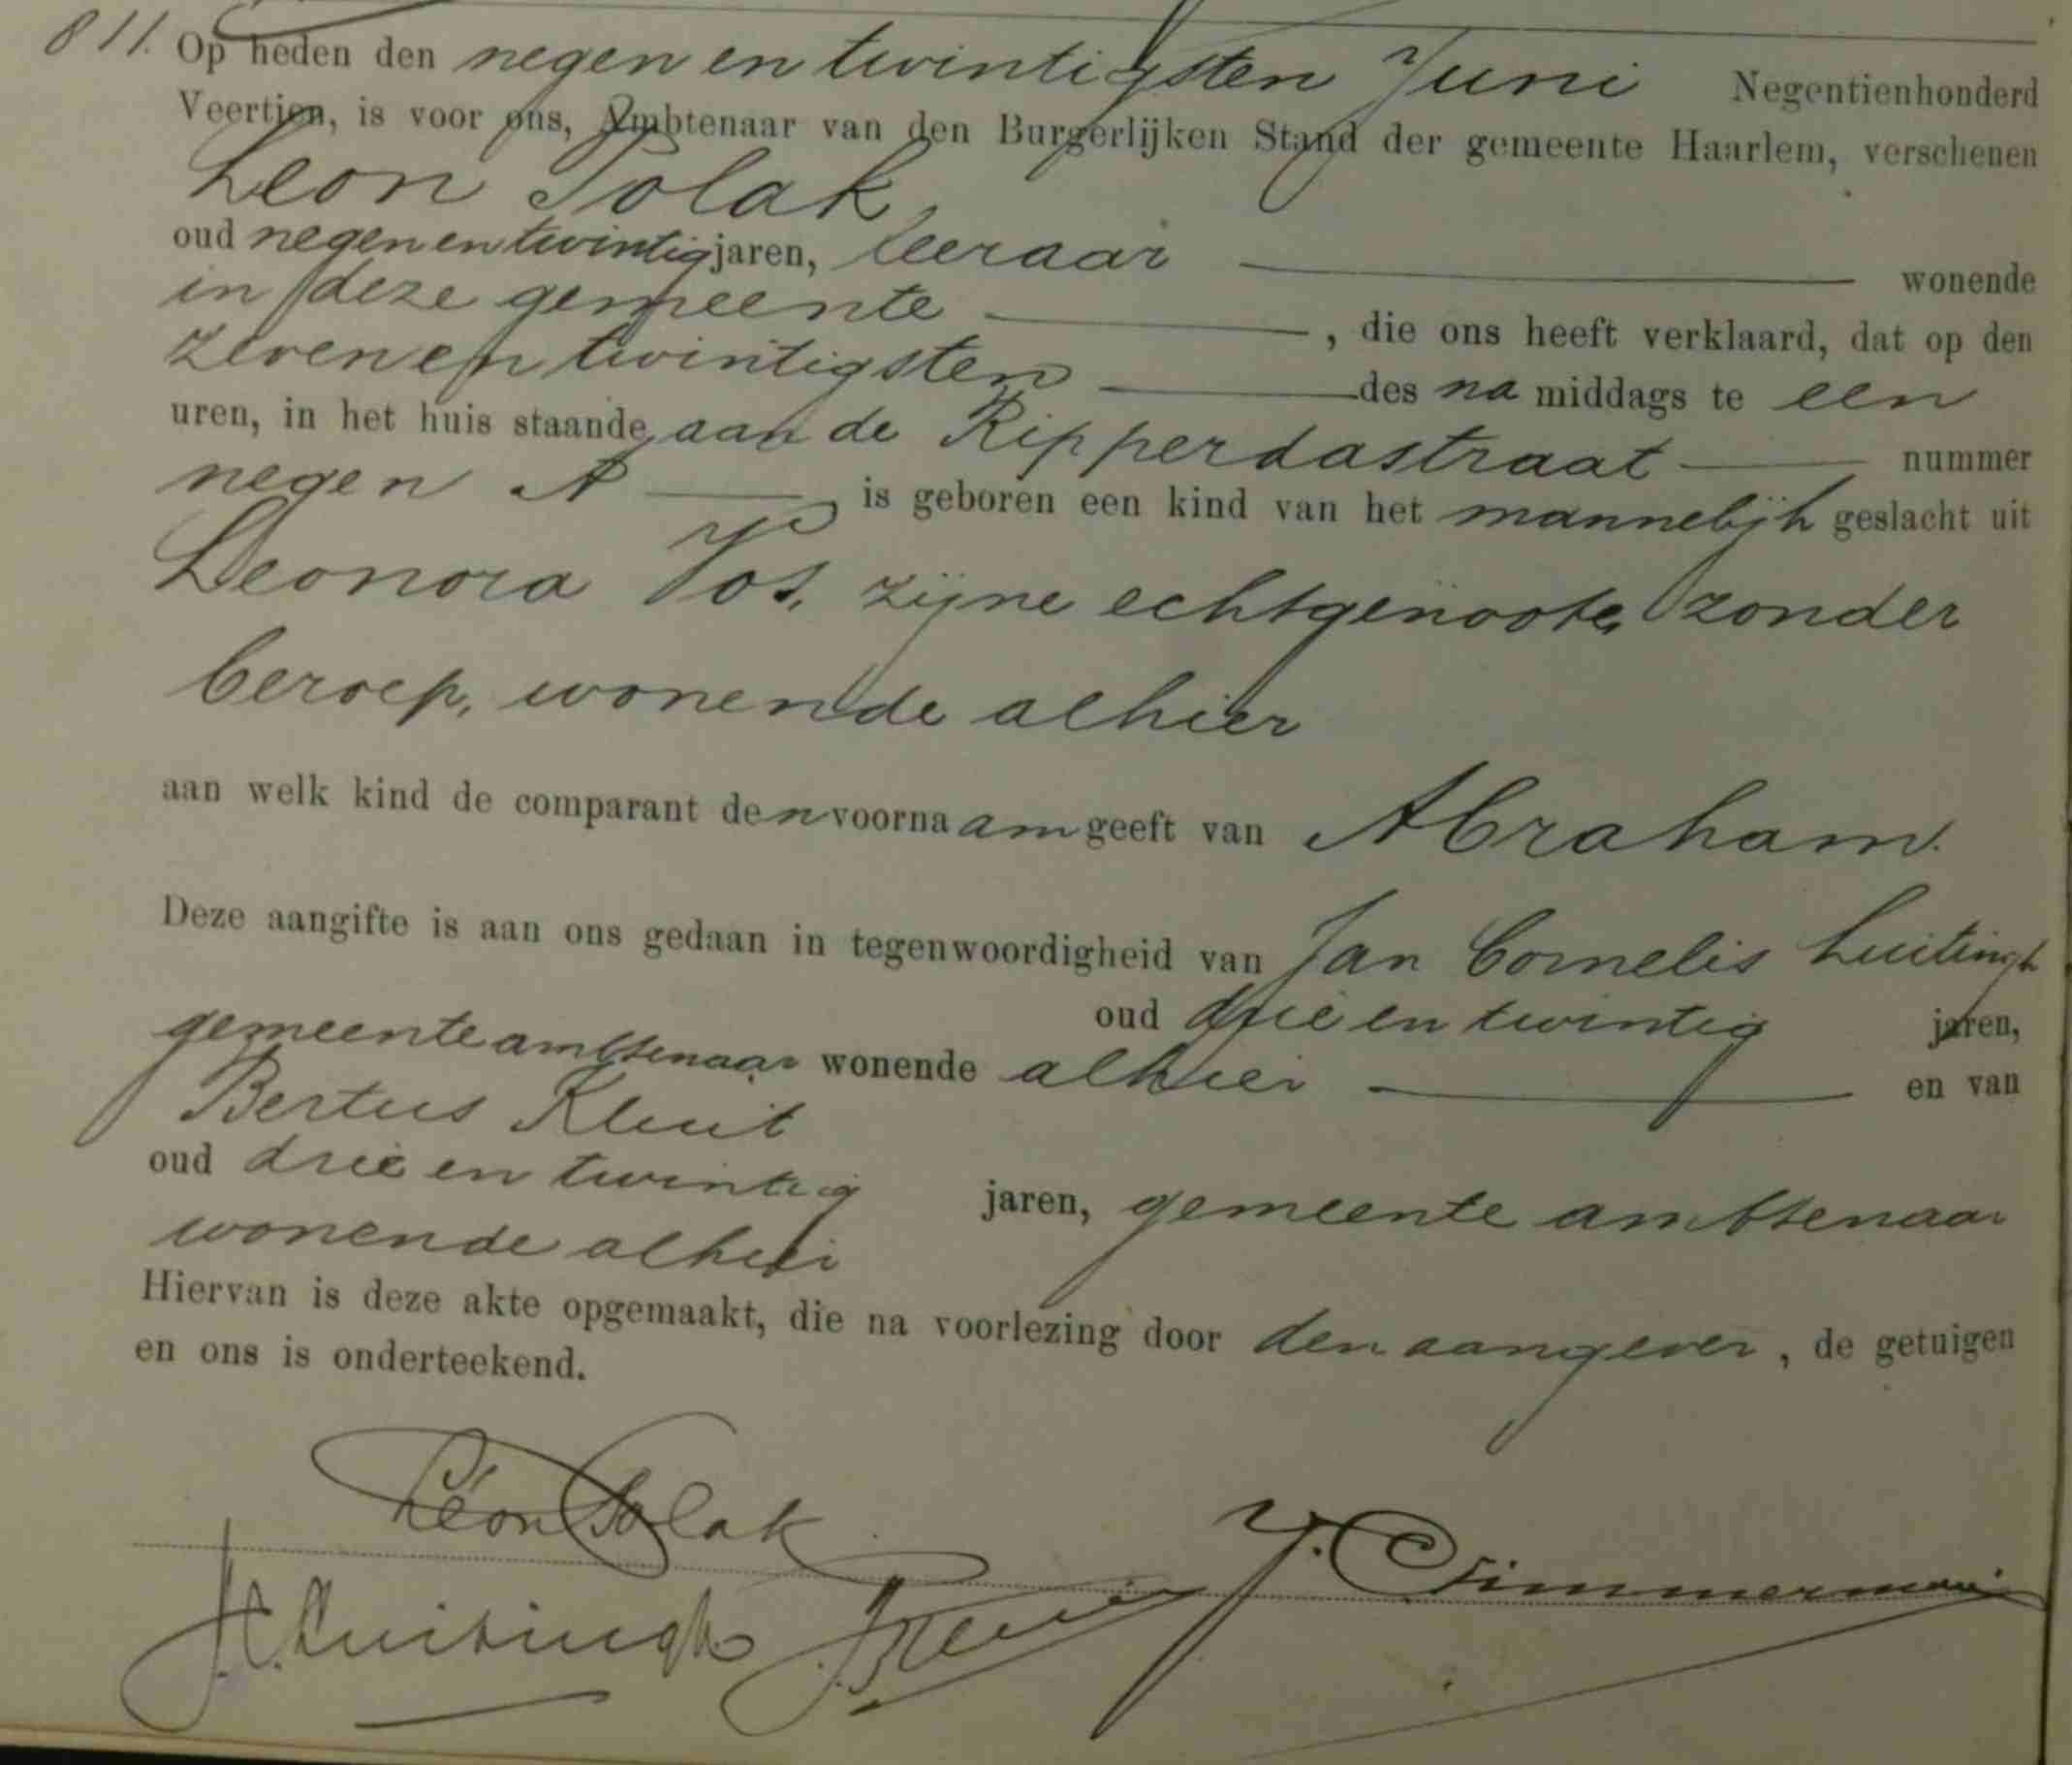 811. Op heden den negen en twintigsten Juni Negentienhonderd
Veertien, is voor ons, Ambtenaar van den Burgerlijken Stand der gemeente Haarlem, verschenen
Leon Polak,
oud negen en twintig jaren, leeraar wonende
in deze gemeente , die ons heeft verklaard, dat op den
zeven en twintigsten des na middags te een
uren, in het huis staande aan de Ripperdastraat nummer
negen A is geboren een kind van het mannelijk geslacht uit
Leonora Vos, zijne echtgenoote, zonder
beroep, wonende alhier
aan welk kind de comparant den voornaam geeft van Abraham.
Deze aangifte is aan ons gedaan in tegenwoordigheid van Jan Cornelis Luitingh
oud drie en twintig jaren,
gemeenteambtenaar wonende alhier en van
Bertus Kluit
oud drie en twintig jaren, gemeente ambtenaar
wonende alhier
Hiervan is deze akte opgemaakt, die na voorlezing door den aangever, de getuigen
en ons is onderteekend.
Léon Polak
J.C. Luitingh